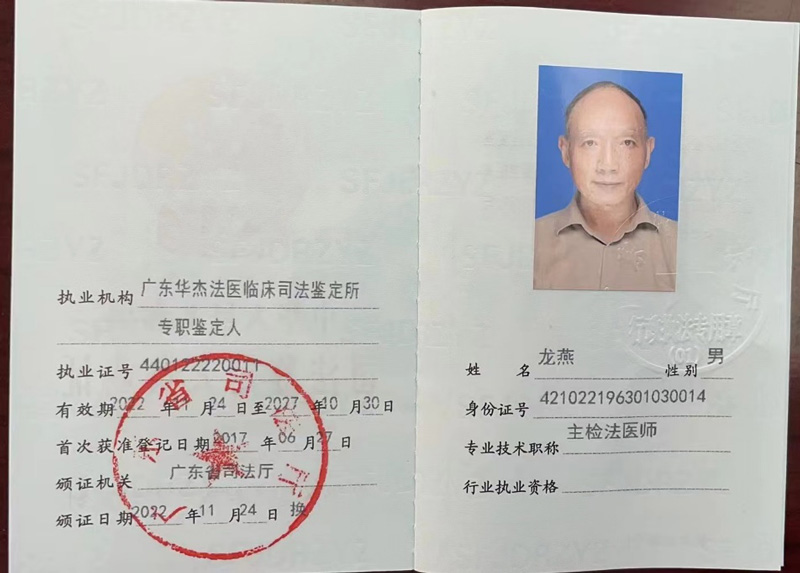 执业机构 广东华杰法医临床司法鉴定所
专职鉴定人
执业证号 440122220011
有效期 2022 年 1 月 24 日至 2027 年 10 月 30 日
首次获准登记日期 2017 年 06 月 27 日
颁证机关 广东省司法厅
颁证日期 2022 年 11 月 24 日 换
姓 名 龙燕 性别 男
身份证号 421022196301030014
专业技术职称 主检法医师
行业执业资格